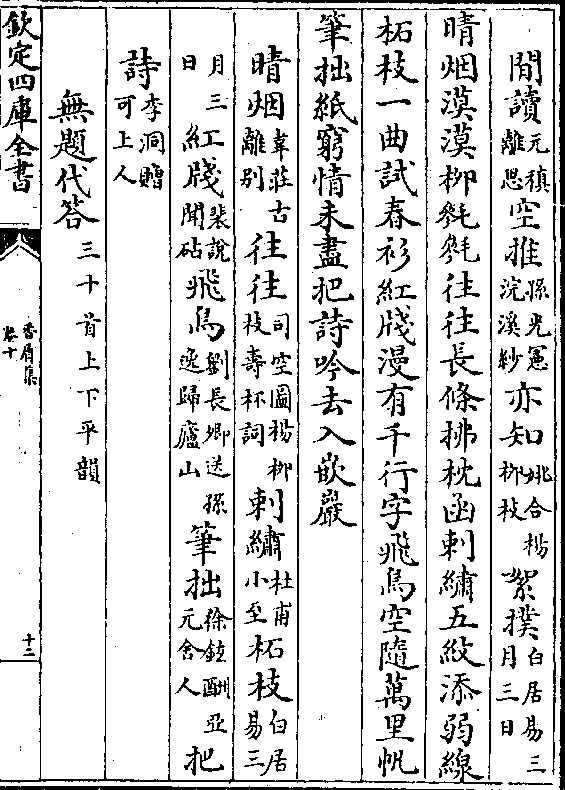 閒讀元稹離思空推孫光憲浣溪紗亦知姚合楊柳枝絮撲白居易三月三日
晴烟漠漠柳毿毿往往長條拂枕函刺繡五紋添弱線
柘枝一曲試春衫紅牋漫有千行字飛鳥空隨萬里帆
筆拙紙窮情未盡把詩吟去入嵌巖
晴烟韋莊古離别往往司空圖楊柳枝壽杯詞刺繡杜甫小至柘枝白居易三
月三日紅牋裴說聞砧飛鳥劉長卿送孫逸歸廬山筆拙徐鉉酬亞元舍人把
詩李洞贈可上人
無題代答三十首上下平韻
欽定四庫全書
香屑集
卷十
十二